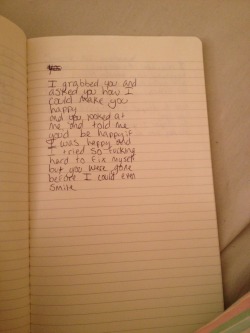 I grabbed you and
asked you how I
could make you
happy
and you looked at
me and told me
youd be happy if
I was happy and
I tried so fucking
hard to fix myself
but you were gone
before I could even
smile